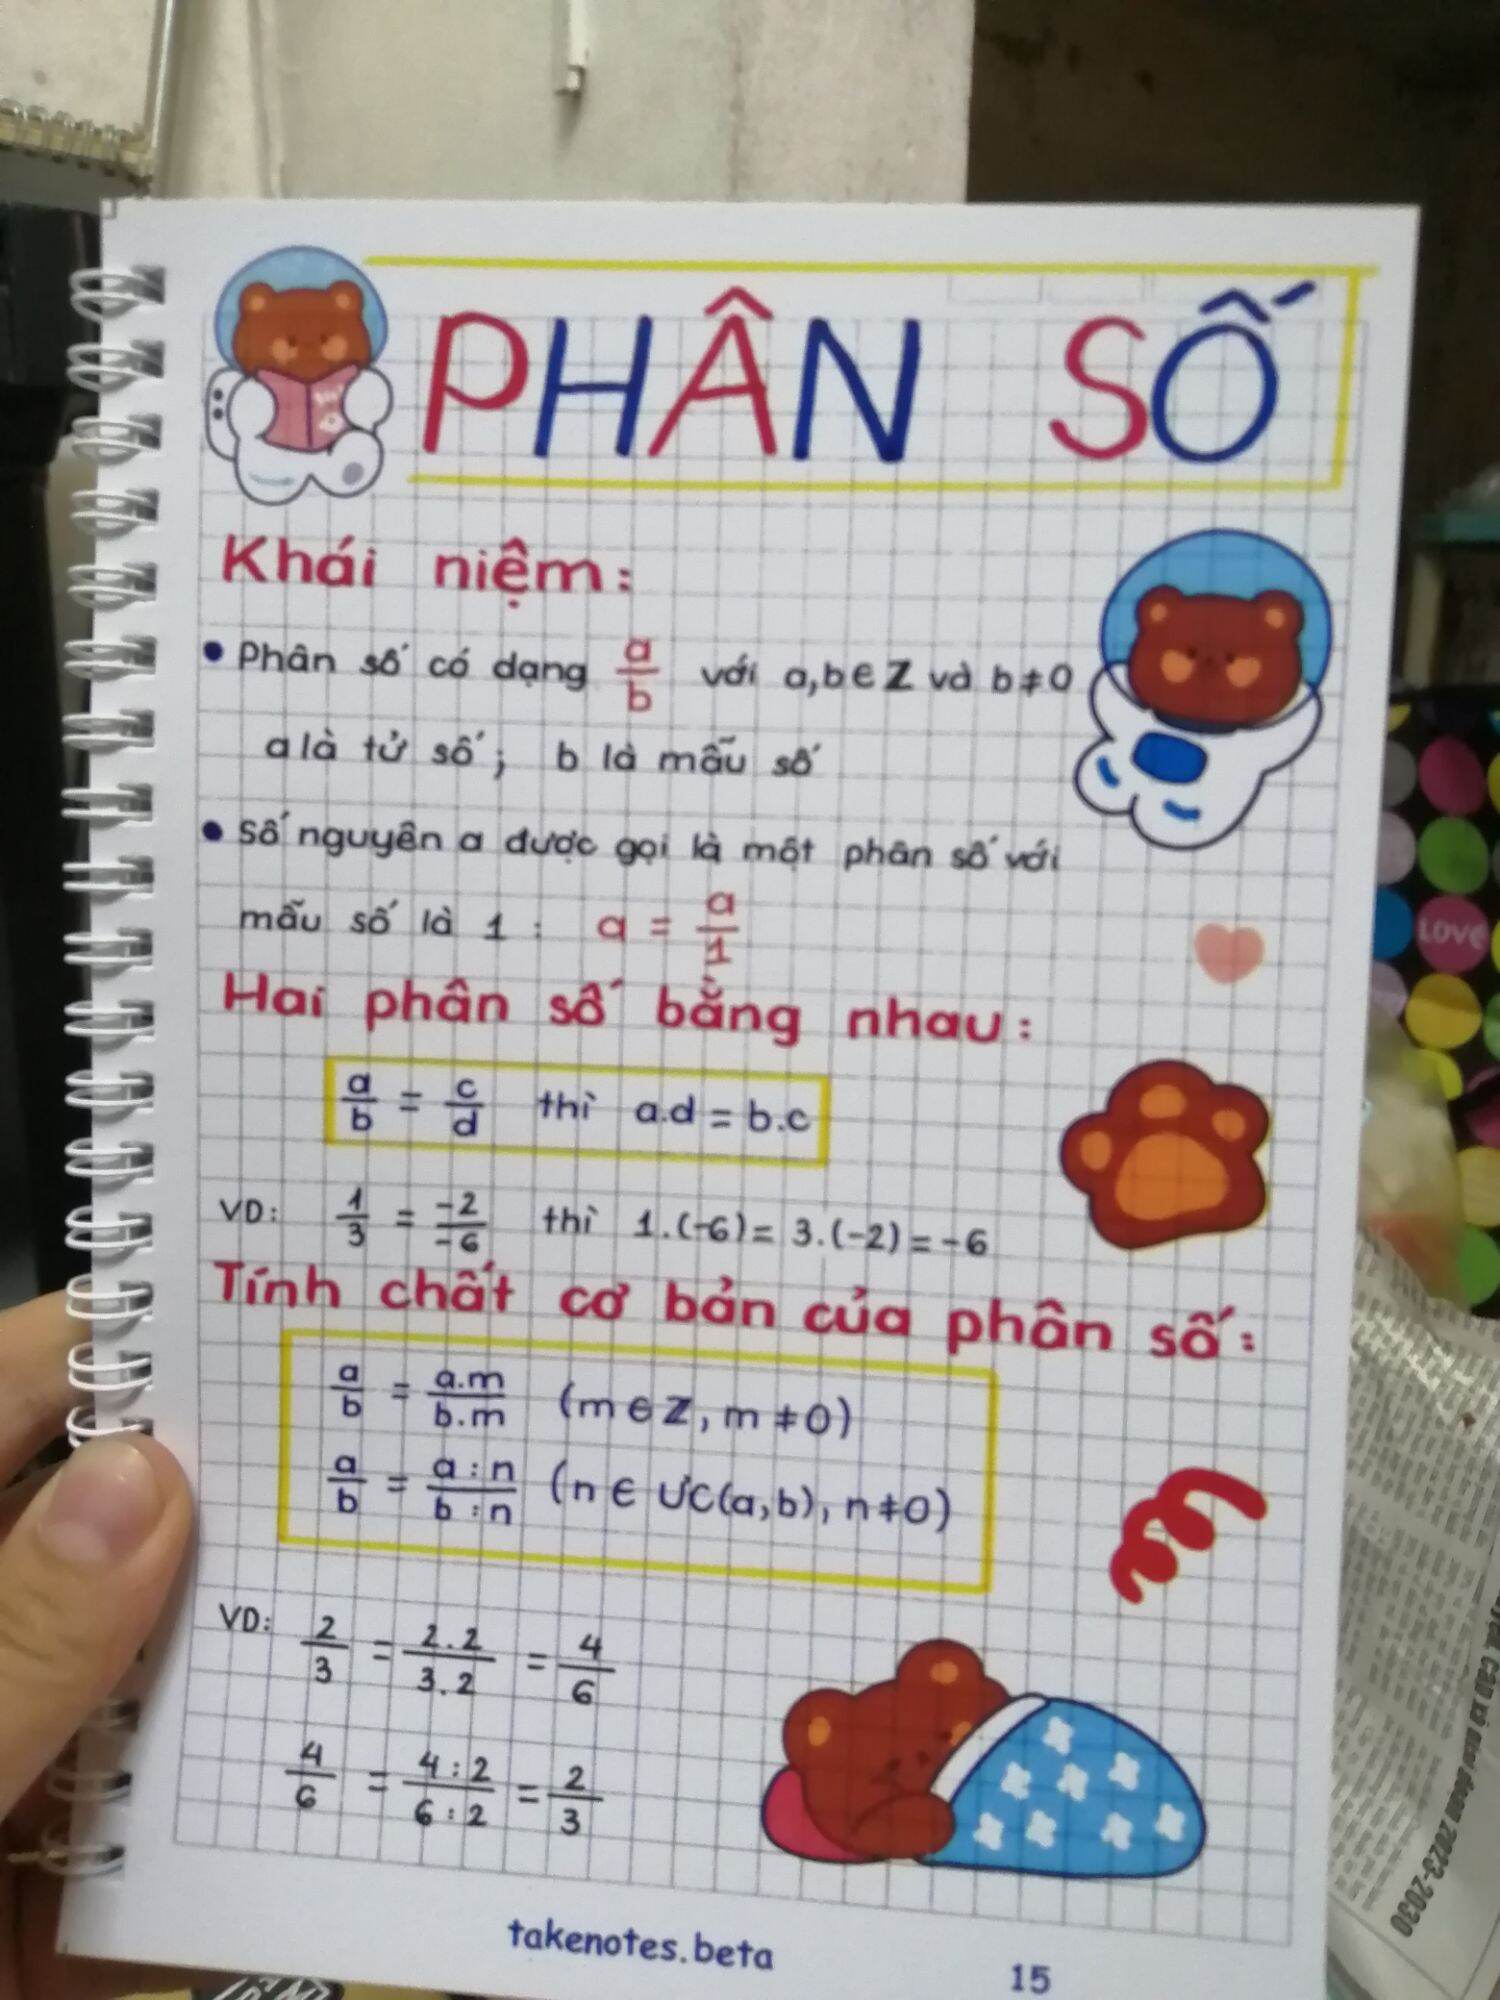 PHÂN SỐ
Khái niệm:
• Phân số có dạng a/b với a,b ∈ Z và b ≠ 0
a là tử số; b là mẫu số
• Số nguyên a được gọi là một phân số với
mẫu số là 1 : a = a/1
Hai phân số bằng nhau:
a/b = c/d thì a.d = b.c
VD: 1/3 = -2/-6 thì 1.(-6) = 3.(-2) = -6
Tính chất cơ bản của phân số:
a/b = a.m/b.m (m ∈ Z, m ≠ 0)
a/b = a:n/b:n (n ∈ ƯC(a,b), n ≠ 0)
VD: 2/3 = 2.2/3.2 = 4/6
4/6 = 4:2/6:2 = 2/3
takenotes.beta
15
LOVE
2023-2030